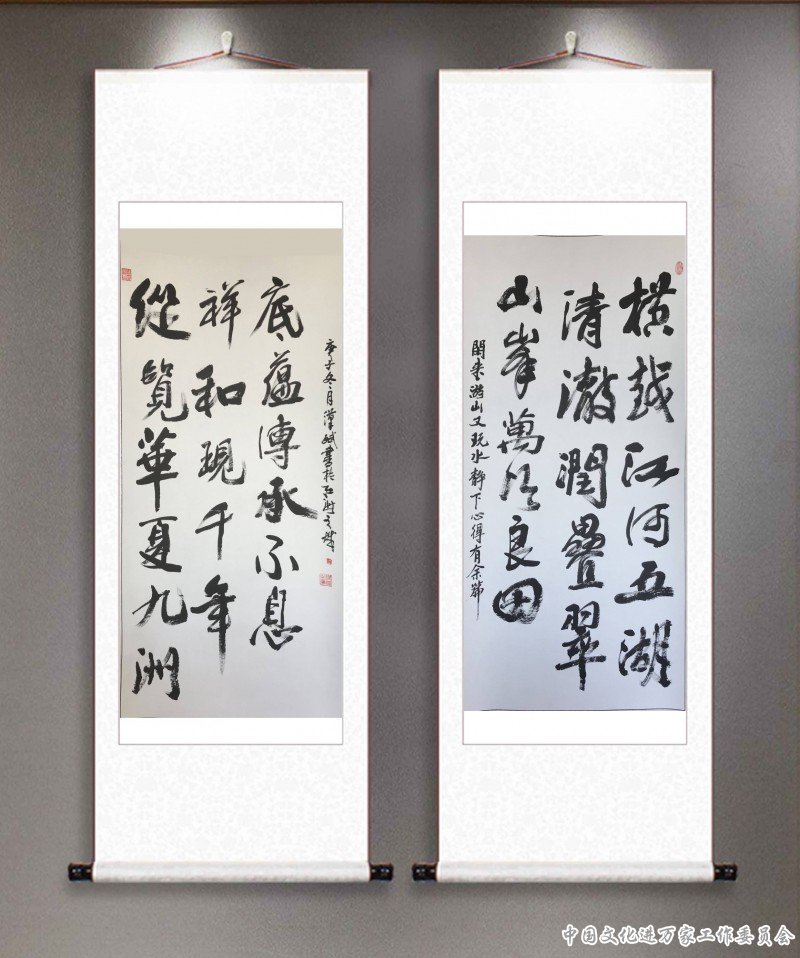 横越江河五湖
清澈潤疊翠
山峯萬頃良田
閑来游山又玩水静下心得有余
縱覽華夏九洲
祥和現千年
底蕴傳承不息
庚子冬月漢斌書於
中国文化进万家工作委员会